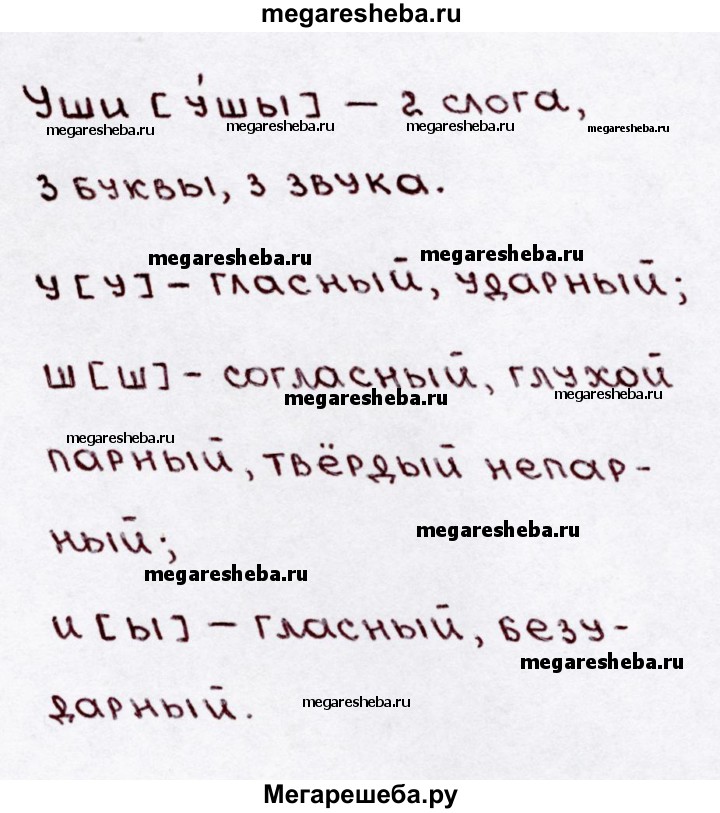 megaresheba.ru
Уши [у́шы] – 2 слога,
megaresheba.ru megaresheba.ru megaresheba.ru megaresheba.ru
3 буквы, 3 звука.
megaresheba.ru megaresheba.ru
у [у] – гласный, ударный;
ш [ш] – согласный, глухой
megaresheba.ru megaresheba.ru
megaresheba.ru
парный, твёрдый непар-
ный;
megaresheba.ru
megaresheba.ru
и [ы] – гласный, безу-
megaresheba.ru
дарный.
megaresheba.ru
Мегарешеба.ру